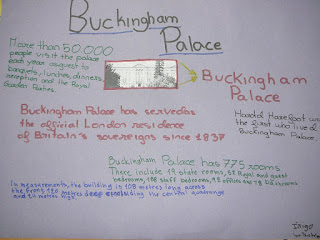 Buckingham
Palace
More than 50.000
people visit the palace
each year as guest to
banquets, lunches, dinners,
reception and the Royal
Garden Parties.
Buckingham
Palace
Buckingham Palace has served as
the official London residence
of Britain's sovereigns since 1837
the first who lived
Buckingham Palace
Buckingham Palace has 775 rooms
These include 19 state rooms, 52 Royal and guest
bedrooms, 188 staff bedrooms, 92 offices and 78 bathrooms
In measurements, the building is 108 metres long across
the front, 120 metres deep
the central quadrange
and 24 metres high
Iñigo